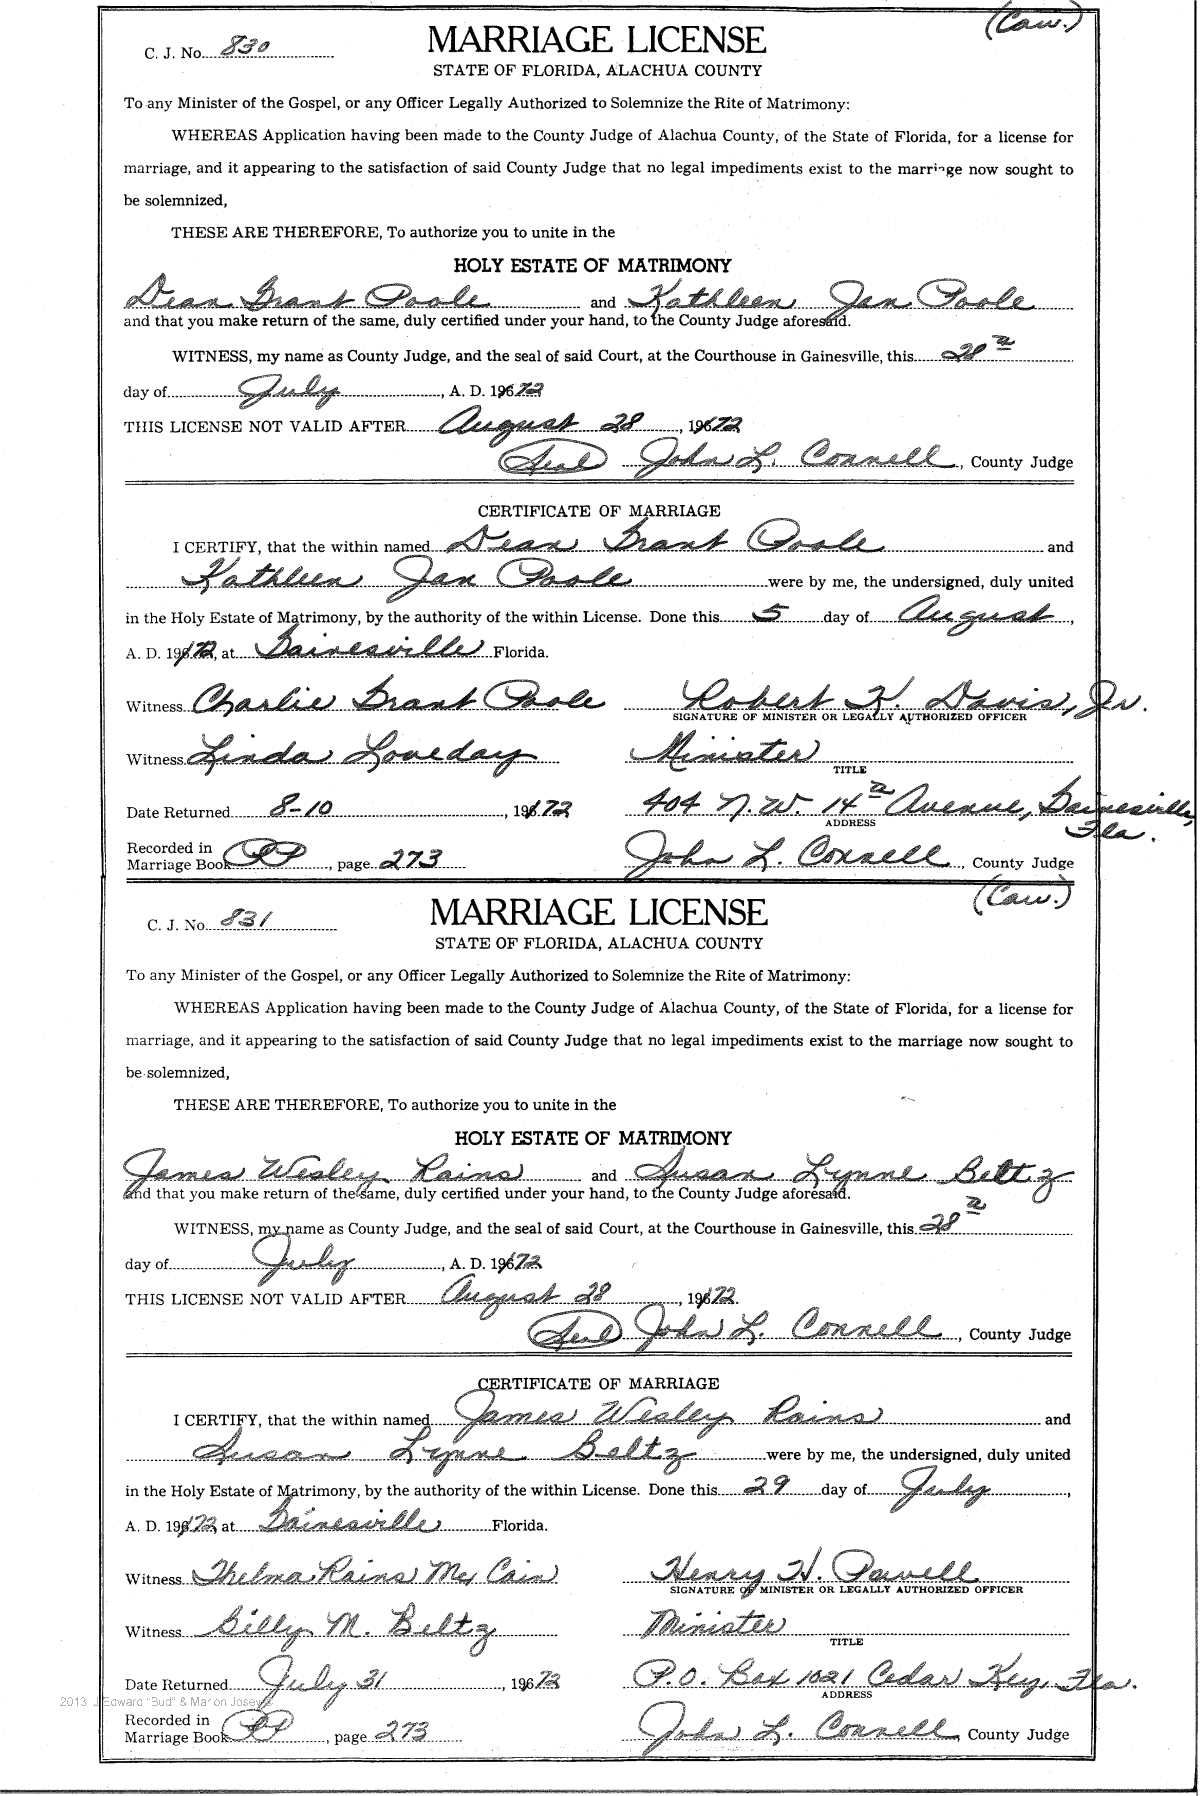 (Caw.)
C. J. No. 830
MARRIAGE LICENSE
STATE OF FLORIDA, ALACHUA COUNTY
To any Minister of the Gospel, or any Officer Legally Authorized to Solemnize the Rite of Matrimony:
WHEREAS Application having been made to the County Judge of Alachua County, of the State of Florida, for a license for
marriage, and it appearing to the satisfaction of said County Judge that no legal impediments exist to the marriage now sought to
be solemnized,
THESE ARE THEREFORE, To authorize you to unite in the
HOLY ESTATE OF MATRIMONY
Dean Grant Poole and Kathleen Jan Poole
and that you make return of the same, duly certified under your hand, to the County Judge aforesaid.
WITNESS, my name as County Judge, and the seal of said Court, at the Courthouse in Gainesville, this 28th
day of July, A. D. 1972
THIS LICENSE NOT VALID AFTER August 28, 1972
(Seal) John L. Connell, County Judge
CERTIFICATE OF MARRIAGE
I CERTIFY, that the within named Dean Grant Poole and
Kathleen Jan Poole were by me, the undersigned, duly united
in the Holy Estate of Matrimony, by the authority of the within License. Done this 5 day of August,
A. D. 1972, at Gainesville Florida.
Witness Charlie Grant Poole Robert K. Davis, Jr.
SIGNATURE OF MINISTER OR LEGALLY AUTHORIZED OFFICER
Witness Linda Loveday Minister
TITLE
Date Returned 8-10, 1972 404 N.W. 14th Avenue, Gainesville,
Fla.
ADDRESS
Recorded in
Marriage Book PP, page 273 John L. Connell, County Judge
(Caw.)
C. J. No. 831
MARRIAGE LICENSE
STATE OF FLORIDA, ALACHUA COUNTY
To any Minister of the Gospel, or any Officer Legally Authorized to Solemnize the Rite of Matrimony:
WHEREAS Application having been made to the County Judge of Alachua County, of the State of Florida, for a license for
marriage, and it appearing to the satisfaction of said County Judge that no legal impediments exist to the marriage now sought to
be solemnized,
THESE ARE THEREFORE, To authorize you to unite in the
HOLY ESTATE OF MATRIMONY
James Wesley Rains and Susan Lynne Beltz
and that you make return of the same, duly certified under your hand, to the County Judge aforesaid.
WITNESS, my name as County Judge, and the seal of said Court, at the Courthouse in Gainesville, this 28th
day of July, A. D. 1972
THIS LICENSE NOT VALID AFTER August 28, 1972.
(Seal) John L. Connell, County Judge
CERTIFICATE OF MARRIAGE
I CERTIFY, that the within named James Wesley Rains and
Susan Lynne Beltz were by me, the undersigned, duly united
in the Holy Estate of Matrimony, by the authority of the within License. Done this 29 day of July,
A. D. 1972, at Gainesville Florida.
Witness Thelma Rains McCain Henry H. Powell
SIGNATURE OF MINISTER OR LEGALLY AUTHORIZED OFFICER
Witness Billy M. Beltz Minister
TITLE
Date Returned July 31, 1972 P.O. Box 1021 Cedar Key, Fla.
ADDRESS
2013 J Edward "Bud" & Marion Josey
Recorded in
Marriage Book PP, page 273 John L. Connell, County Judge